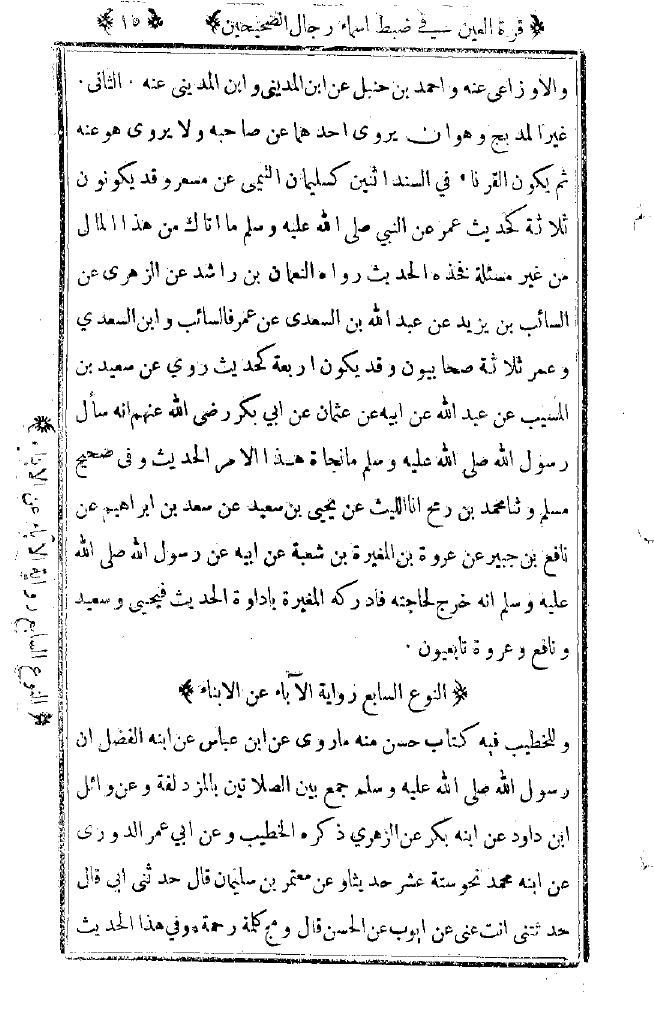 ﴿ قرة العين في ضبط اسماء رجال الصحيحين ﴾ ﴿ ١٥ ﴾
والاوزاعى عنه واحمد بن حنبل عن ابن المدينى وابن المدينى عنه ٠ الثانى ٠
غير المدبج وهو ان يروى احدهما عن صاحبه ولا يروى هو عنه
ثم يكون القرناء في السند اثنين كسليمان التيمى عن مسعر وقد يكونون
ثلاثة كحديث عمر عن النبي صلى الله عليه وسلم ما اتاك من هذا المال
من غير مسئلة فخذه الحديث رواه النعمان بن راشد عن الزهرى عن
السائب بن يزيد عن عبد الله بن السعدى عن عمر فالسائب وابن السعدي
وعمر ثلاثة صحابيون وقد يكون اربعة كحديث روي عن سعيد بن
المسيب عن عبد الله عن ابيه عن عثمان عن ابي بكر رضى الله عنهم انه سأل
رسول الله صلى الله عليه وسلم ما نجاة هذا الامر الحديث وفى صحيح
مسلم وثنا محمد بن رمح انا الليث عن يحيى بن سعيد عن سعد بن ابراهيم عن
نافع بن جبير عن عروة بن المغيرة بن شعبة عن ابيه عن رسول الله صلى الله
عليه وسلم انه خرج لحاجته فادركه المغيرة باداوة الحديث فيحيى وسعيد
ونافع وعروة تابعيون ٠
﴿ النوع السابع رواية الآباء عن الابناء ﴾
وللخطيب فيه كتاب حسن منه ما روى عن ابن عباس عن ابنه الفضل ان
رسول الله صلى الله عليه وسلم جمع بين الصلاتين بالمزدلفة وعن وائل
ابن داود عن ابنه بكر عن الزهري ذكره الخطيب وعن ابي عمر الدورى
عن ابنه محمد نحو ستة عشر حديثا وعن معتمر بن سليمان قال حدثنى ابى قال
حدثتنى انت عنى عن ايوب عن الحسن قال ويح كلمة رحمة وفي هذا الحديث
﴿ النوع السابع رواية الآباء عن الابناء ﴾